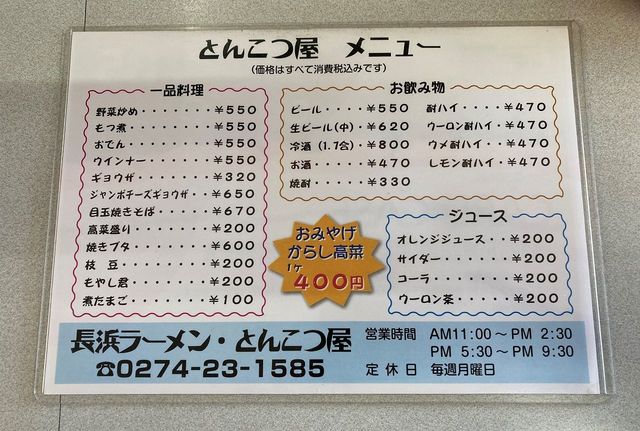 とんこつ屋 メニュー
(価格はすべて消費税込みです)
一品料理
野菜炒め・・・・・・・￥550
もつ煮・・・・・・・・￥550
おでん・・・・・・・・￥550
ウインナー・・・・・・￥550
ギョウザ・・・・・・・￥320
ジャンボチーズギョウザ・・￥650
目玉焼きそば・・・・・￥670
高菜盛り・・・・・・・￥200
焼きブタ・・・・・・・￥600
枝 豆・・・・・・・・￥200
もやし君・・・・・・・￥200
煮たまご・・・・・・・￥100
お飲み物
ビール・・・・￥550
生ビール(中)・￥620
冷酒(1.7合)・￥800
お酒・・・・・￥470
焼酎・・・・・￥330
酎ハイ・・・・￥470
ウーロン酎ハイ・￥470
ウメ酎ハイ・・￥470
レモン酎ハイ・￥470
おみやげ
からし高菜
1ケ
400円
ジュース
オレンジジュース・・￥200
サイダー・・・・・￥200
コーラ・・・・・・￥200
ウーロン茶・・・・￥200
長浜ラーメン・とんこつ屋
☎0274-23-1585
営業時間 AM11:00～PM 2:30
PM 5:30～PM 9:30
定休日 毎週月曜日